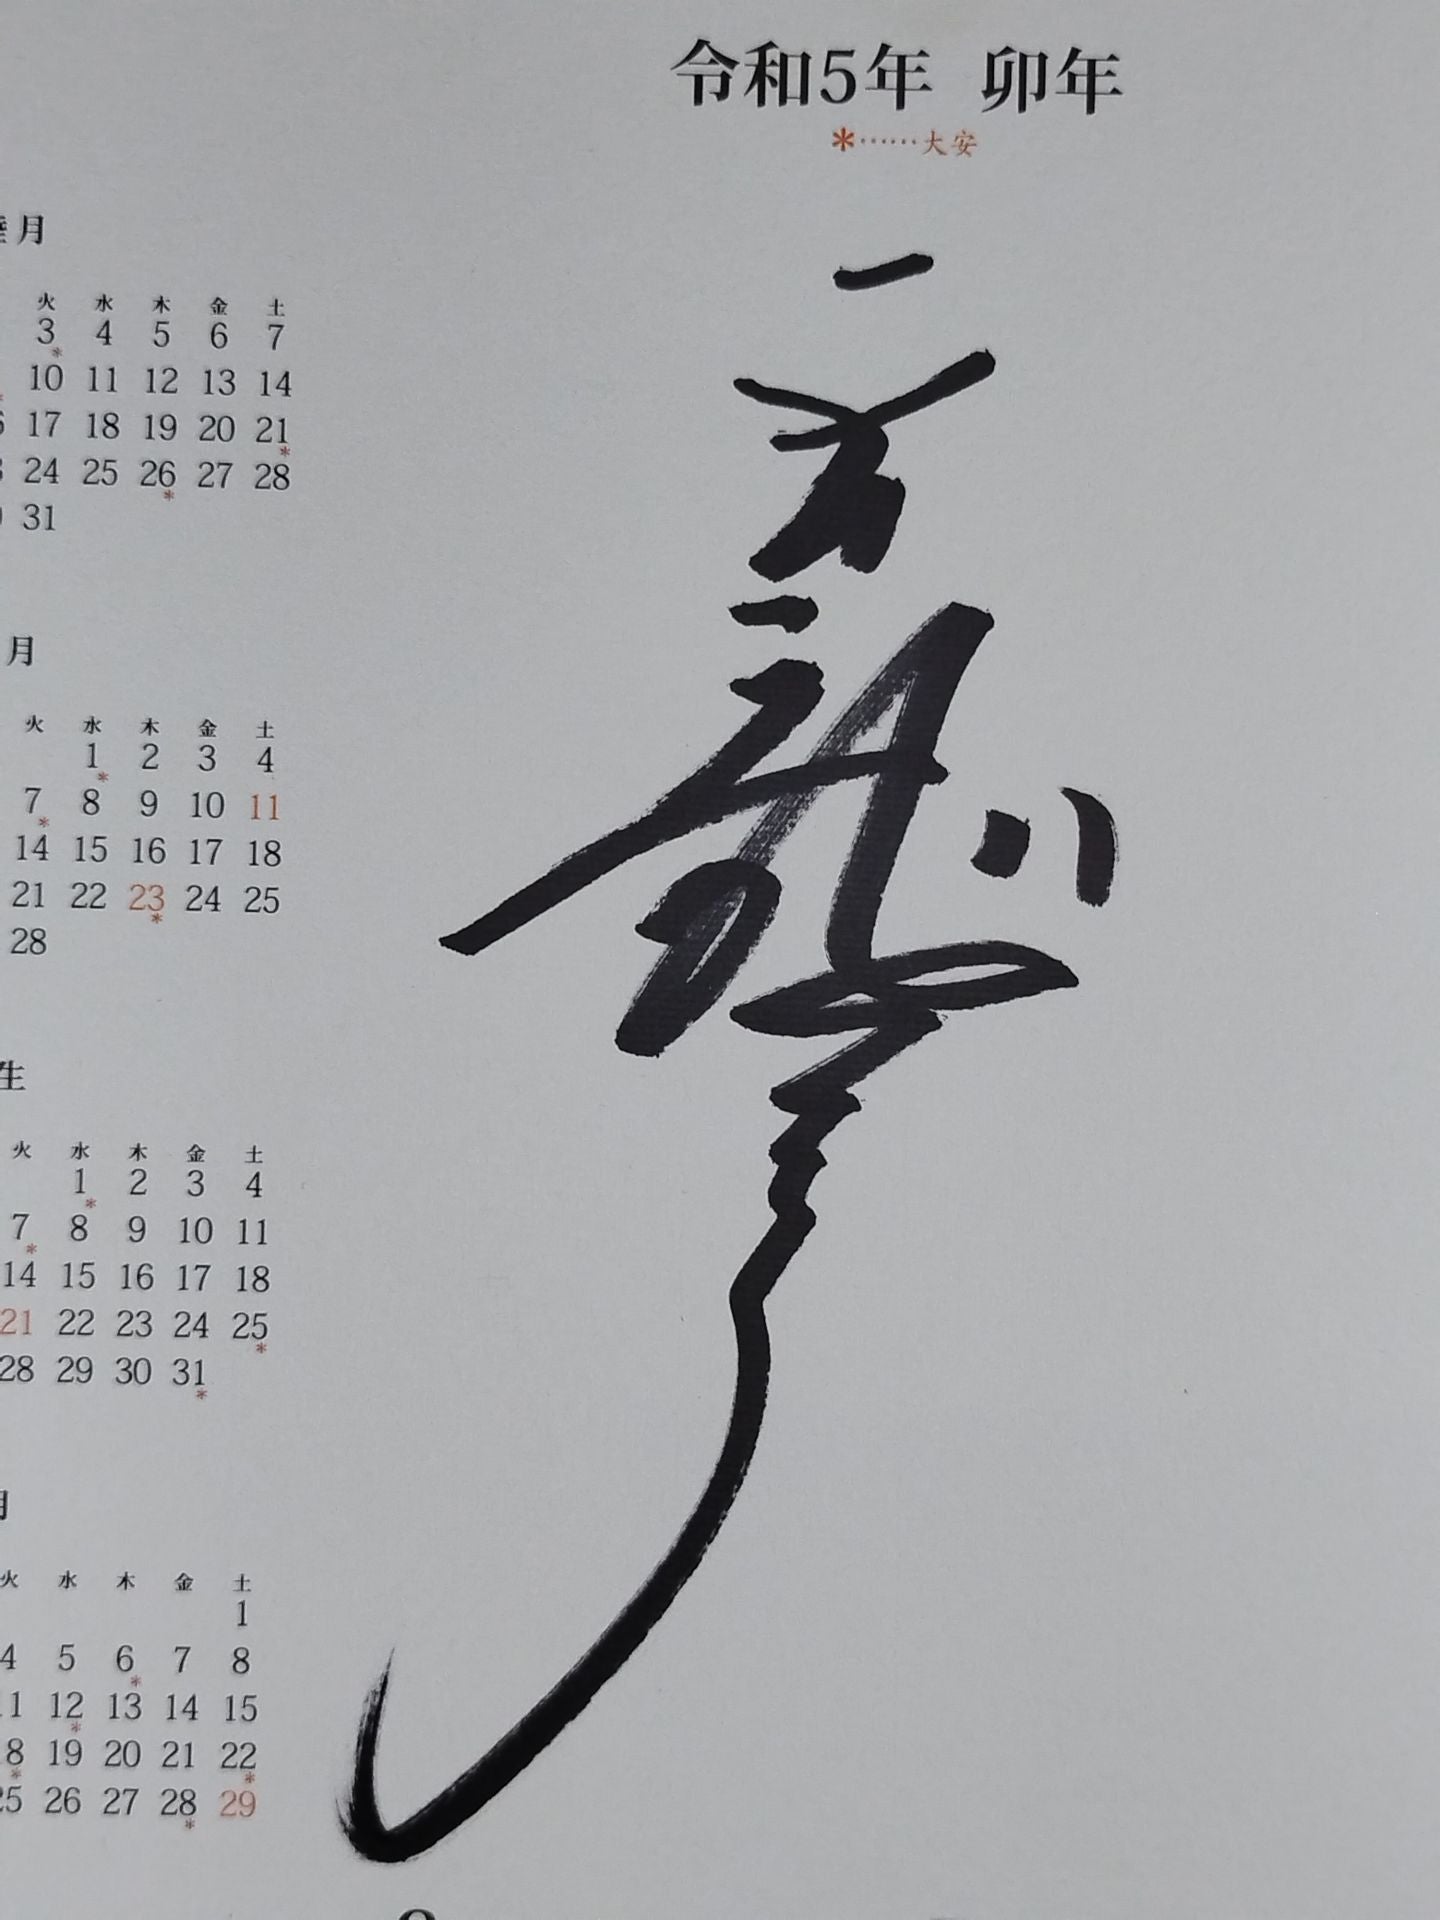 令和5年 卯年
*……大安
月
火 水 木 金 土
3 4 5 6 7
10 11 12 13 14
17 18 19 20 21
24 25 26 27 28
31
月
火 水 木 金 土
1 2 3 4
7 8 9 10 11
14 15 16 17 18
21 22 23 24 25
28
生
火 水 木 金 土
1 2 3 4
7 8 9 10 11
14 15 16 17 18
21 22 23 24 25
28 29 30 31
月
火 水 木 金 土
1
4 5 6 7 8
11 12 13 14 15
18 19 20 21 22
25 26 27 28 29